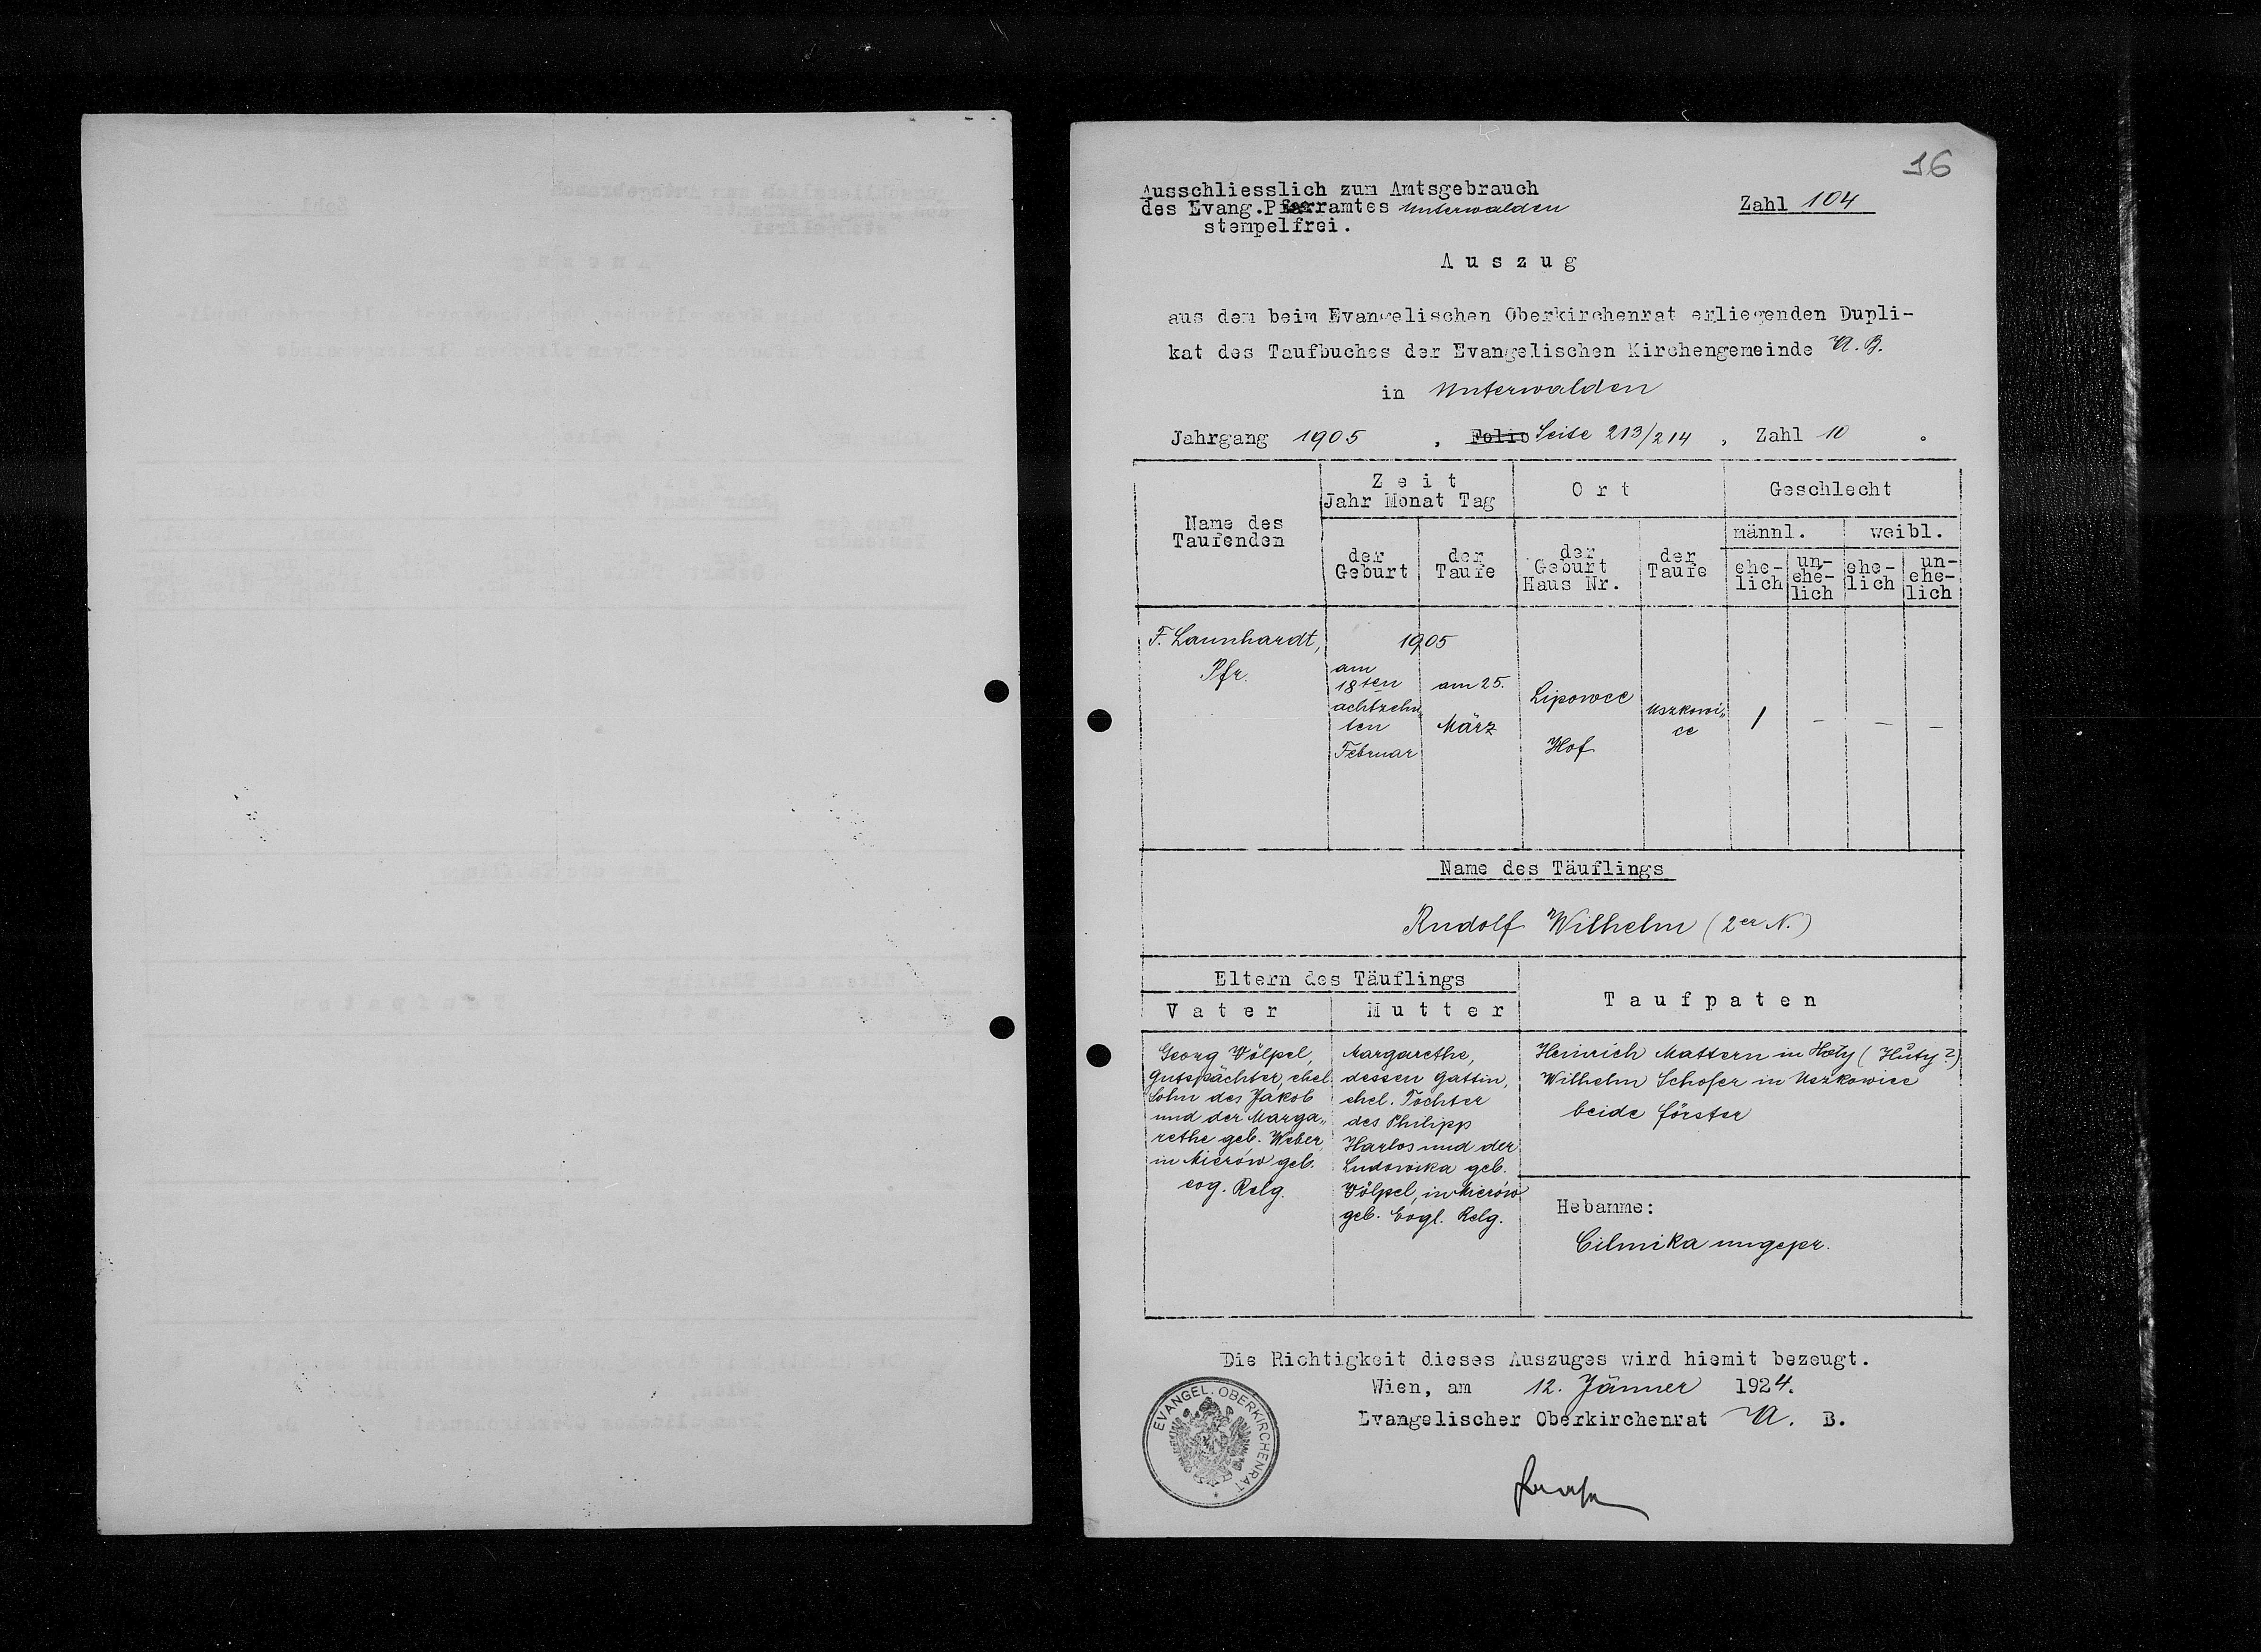 16
Ausschliesslich zum Amtsgebrauch
des Evang. Pfarramtes Unterwalden
stempelfrei.
Zahl 104
Auszug
aus dem beim Evangelischen Oberkirchenrat erliegenden Dupli-
kat des Taufbuches der Evangelischen Kirchengemeinde A. B.
in Unterwalden
Jahrgang 1905 , Folio Seite 213/214 , Zahl 10 .
Name des
Taufenden
Zeit
Jahr Monat Tag
der
Geburt
der
Taufe
Ort
der
Geburt
Haus Nr.
der
Taufe
Geschlecht
männl.
weibl.
ehe-
lich
un-
ehe-
lich
ehe-
lich
un-
ehe-
lich
F. Launhardt,
Pfr.
1905
am
18ten
achtzehn„
ten
Februar
am 25.
März
Lipowce
Hof
Uszkowi„
ce
1
-
-
-
Name des Täuflings
Rudolf Wilhelm (2er N.)
Eltern des Täuflings
Vater
Mutter
Taufpaten
Georg Völpel,
Gutspächter, ehel.
Sohn des Jakob
und der Marga„
rethe geb. Weber,
in Mierów geb.
evg. Relg.
Margarethe,
dessen Gattin,
ehel. Tochter
des Philipp
Harlos und der
Ludowika geb.
Völpel, in Mierów
geb. Evgl. Relg.
Heinrich Mattern in Hoty (Huty?)
Wilhelm Schofer in Uszkowice
beide Förster
Hebamme:
Cilmika ungepr.
Die Richtigkeit dieses Auszuges wird hiemit bezeugt.
Wien, am 12. Jänner 1924.
Evangelischer Oberkirchenrat A. B.
EVANGEL. OBERKIRCHENRAT